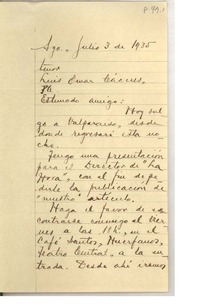 Sgo. Julio 3 de 1935
Luis Omar Cáceres,
Estimado amigo:
Hoy sal
go a Valparaíso, desde
donde regresaré esta no
che.
Tengo una presentación
para el Director de "La
Hora", con el fin de pe
dirle la publicación de
"nuestro" artículo.
Haga el favor de en
contrarse conmigo el Vier
nes a las 11 h., en el
Café Santos, Huérfanos,
Teatro Central, a la en
trada. Desde ahí iremos